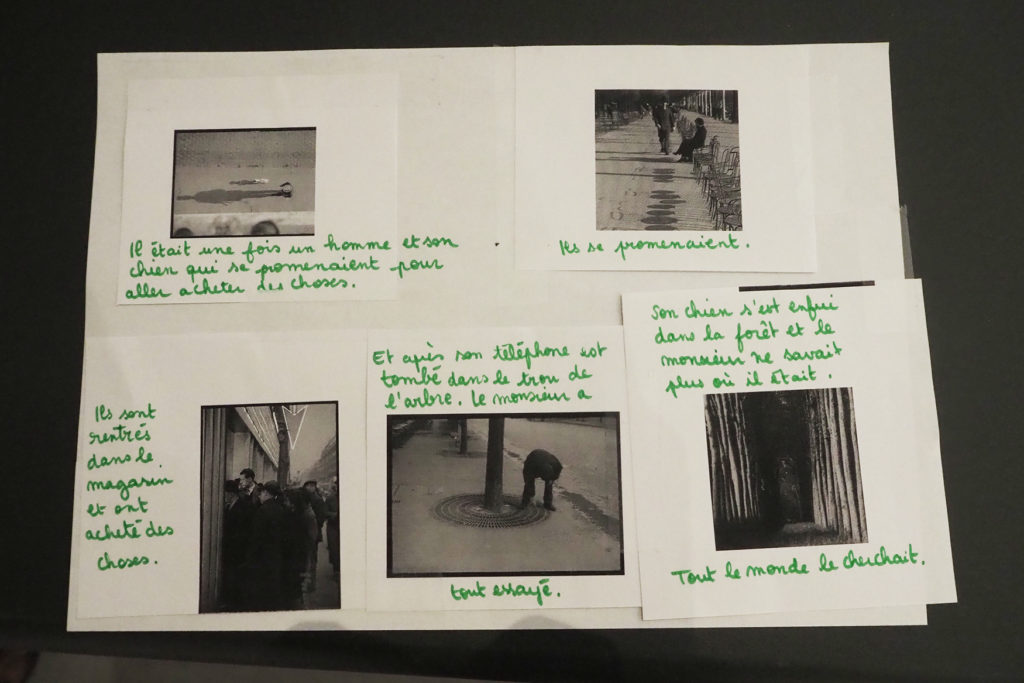 Il était une fois un homme et son
chien qui se promenaient pour
aller acheter des choses.
Ils se promenaient.
Ils sont
rentrés
dans le
magasin
et ont
acheté des
choses.
Et après son téléphone est
tombé dans le trou de
l'arbre. Le monsieur a
tout essayé.
Son chien s'est enfui
dans la forêt et le
monsieur ne savait
plus où il était.
Tout le monde le cherchait.